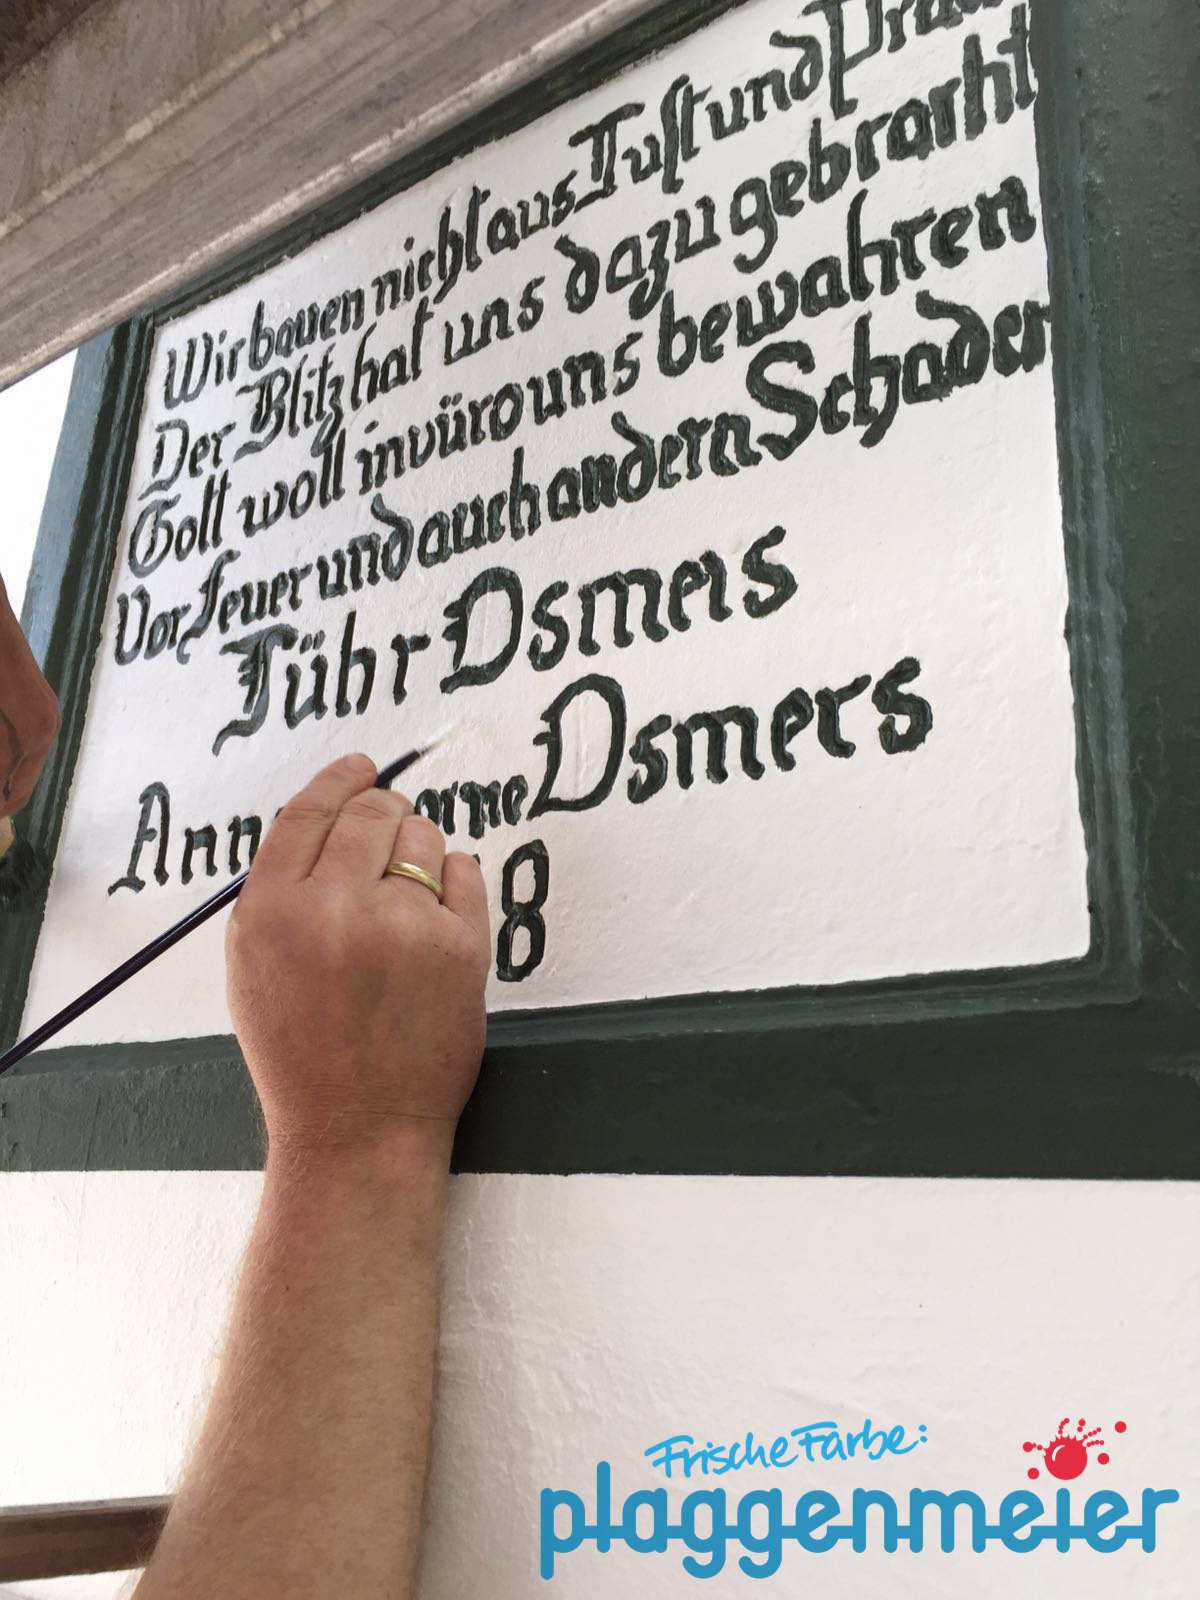 Wir bauen nicht aus Lust und
Der Blitz hat uns dazu gebracht
Gott woll in vüro uns bewahren
Vor feuer und auch andern Schaden
Lühr Osmers
Osmers
8
Frische Farbe:
plaggenmeier